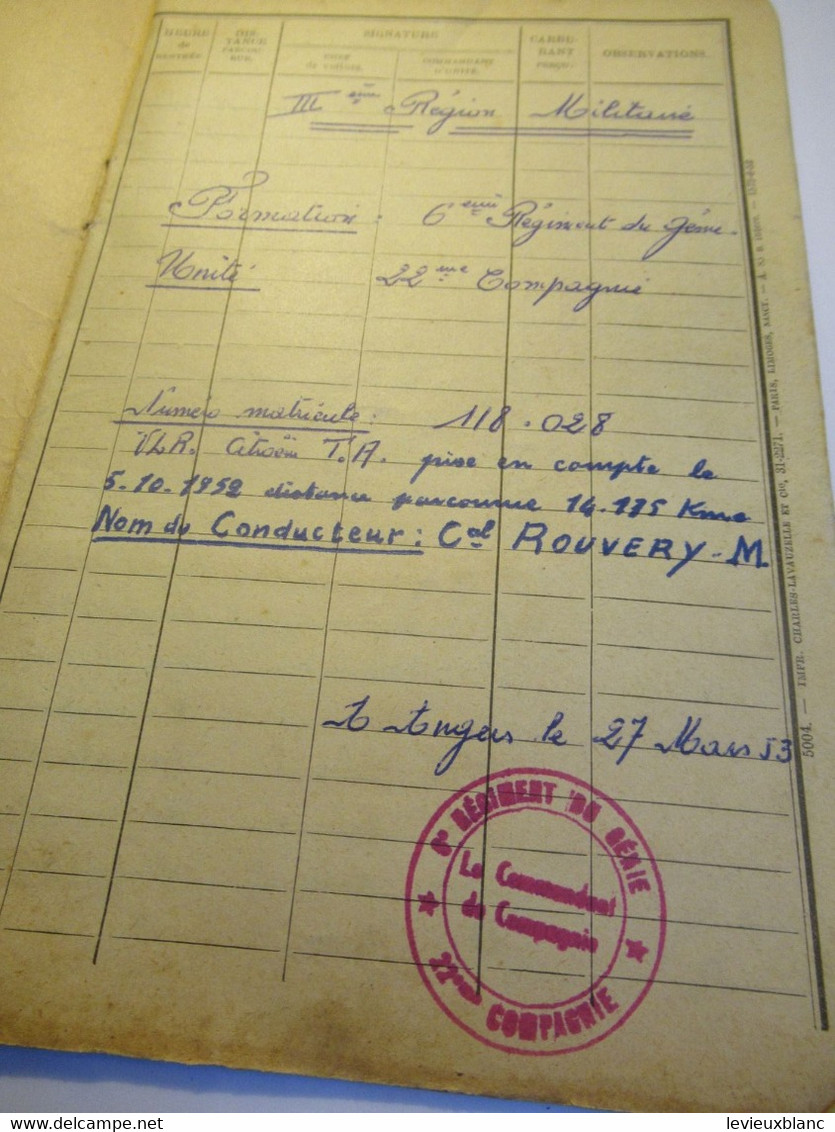 HEURE
de
RENTRÉE.
DIS-
TANCE
PARCOU-
RUE.
SIGNATURE
CHEF
de voiture.
COMMANDANT
D'UNITÉ.
CARBU-
RANT
PERÇU.
OBSERVATIONS.
III ème Région Militaire
Formation : 6 ème Régiment du Génie.
Unité : 22 ème Compagnie
Numéro matricule : 118.028
VLR. Citroën T.A. prise en compte le
5.10.1952 distance parcourue 14.175 Kms
Nom du Conducteur : Cal ROUVERY-M.
A Angers le 27 Mars 53
6e RÉGIMENT DU GÉNIE
Le Commandant
de Compagnie
22ème COMPAGNIE
5004. — IMPR. CHARLES-LAVAUZELLE ET Cie, 31-2271. — PARIS, LIMOGES, NANCY.
www.delcampe.net
levieuxblanc